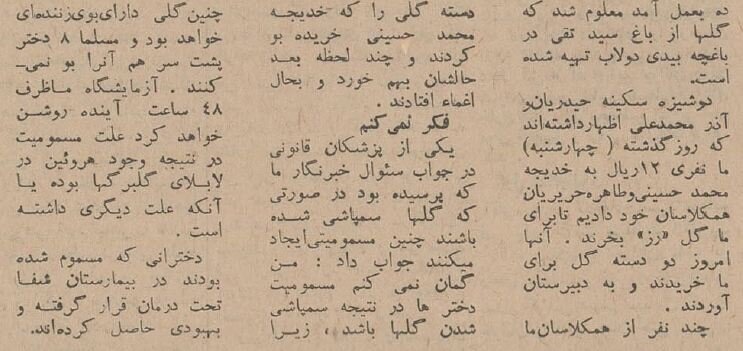 ده بعمل آمد معلوم شد که
گلها از باغ سید تقی در
باغچه بیدی دولاب تهیه شده
است.
دوشیزه سکینه حیدریان و
آذر محمدعلی اظهارداشته‌اند
که روز گذشته ( چهارشنبه)
ما نفری ۱۲ریال به خدیجه
محمد حسینی وطاهره حریریان
همکلاسان خود دادیم تابرای
ما گل «رز» بخرند . آنها
امروز دو دسته گل برای
ما خریدند و به دبیرستان
آوردند .
چند نفر از همکلاسان‌ما
دسته گلی را که خدیجه
محمد حسینی خریده بو
کردند و چند لحظه بعد
حالشان بهم خورد و بحال
اغماء افتادند .
فکر نمی‌کنم
یکی از پزشکان قانونی
در جواب سئوال خبرنگار ما
که پرسیده بود در صورتی
که گلها سمپاشی شده
باشند چنین مسمومیتی ایجاد
میکنند جواب داد : من
گمان نمی کنم مسمومیت
دختر ها در نتیجه سمپاشی
شدن گلها باشد ، زیرا
چنین گلی دارای بوی زننده‌ای
خواهد بود و مسلما ۸ دختر
پشت سر هم آنرا بو نمی‌ـ
کنند . آزمایشگاه ماظرف
۴۸ ساعت آینده روشن
خواهد کرد علت مسمومیت
در نتیجه وجود هروئین در
لابلای گلبرگها بوده یا
آنکه علت دیگری داشته
است .
دخترانی که مسموم شده
بودند در بیمارستان شفا
تحت درمان قرار گرفته و
بهبودی حاصل کرده‌اند.